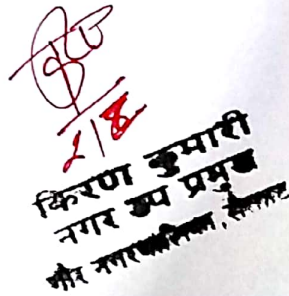 २।४
किरण कुमारी
नगर उप प्रमुख
गौर नगरपालिका, रौतहट